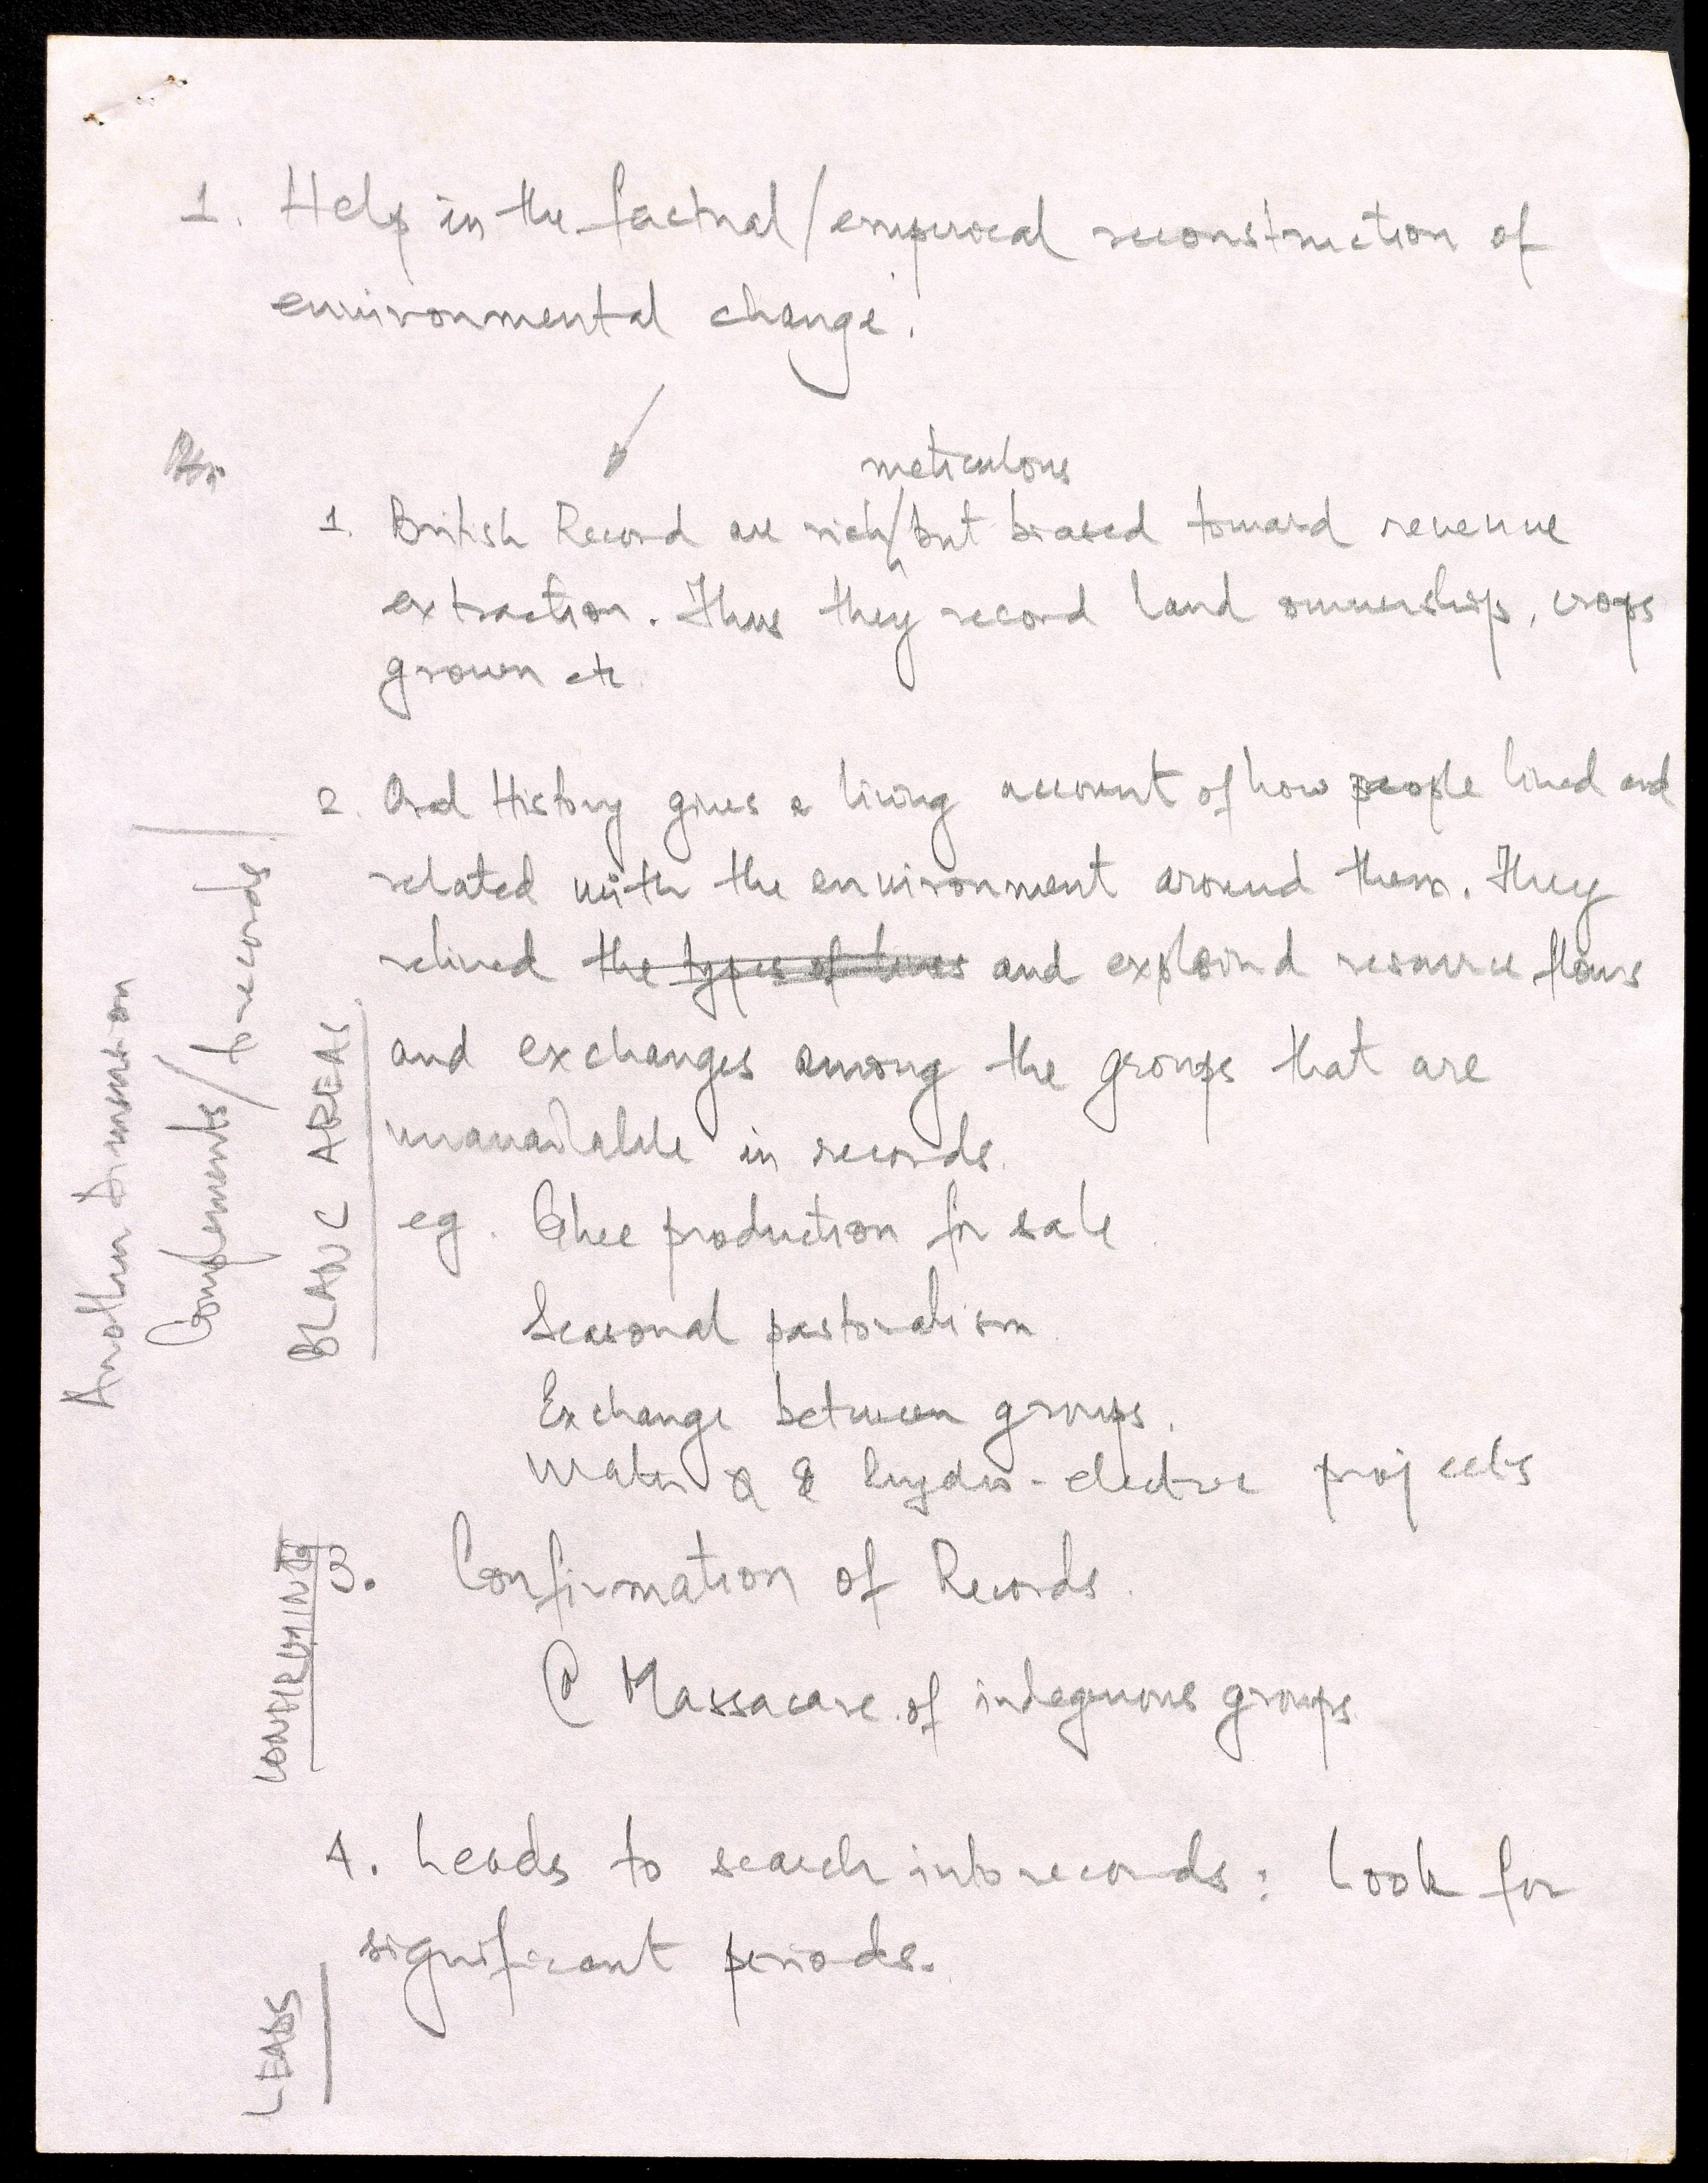 1. Help in the factual/emperical reconstruction of
environmental change.
meticulous
1. British Record are rich/but biased toward revenue
extraction. Thus they record land ownership, crops
grown etc.
2. Oral History gives a living account of how people lived and
related with the environment around them. They
relived the types of lives and explaind resource flows
and exchanges among the groups that are
unavailable in records.
eg. Ghee production for sale.
Seasonal pastoralism.
Exchange between groups.
Water & hydro-electric projects
3. Confirmation of Records.
@ Massacare of indegenous groups.
4. Leads to search into records: Look for
significant periods.
Another dimension
Complements/to records
BLANC AREAS
CONFIRMING
LEADS